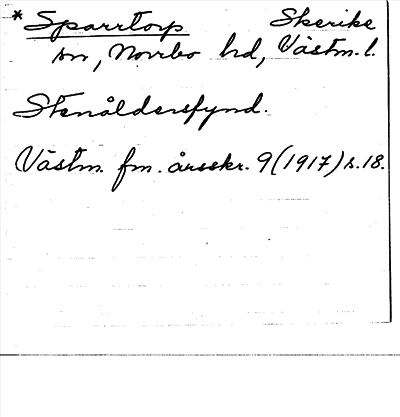 * Sparrtorp Skerike
sn, Norrbo hd, Västm. l.
Stenåldersfynd.
Västm. fm. årsskr. 9 (1917) s. 18.